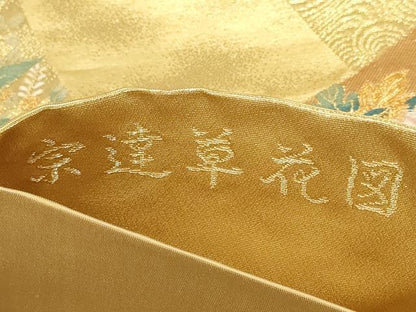 宗達草花図